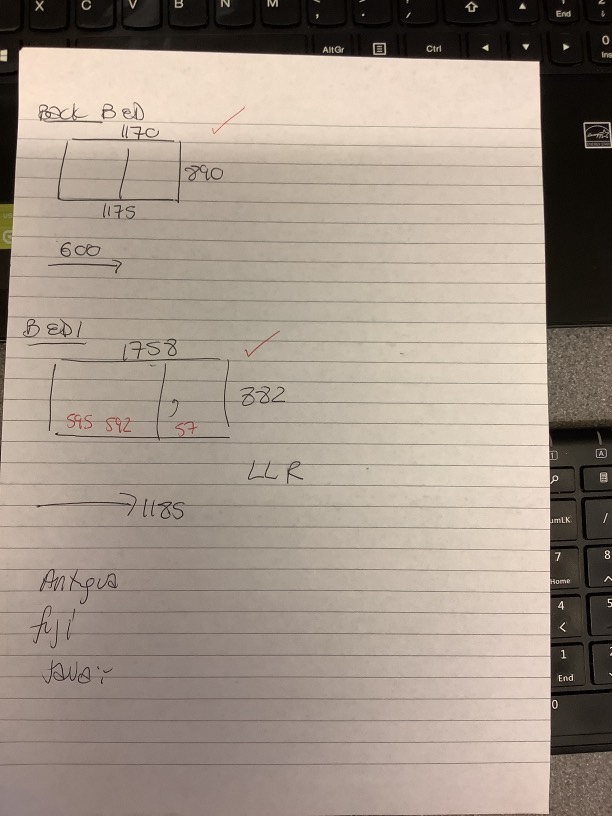 X C V B N M
End
AltGr Ctrl
Ins
Back BED
1170
890
1175
600
BED1
1758
882
595 592 57
LLR
1185
Antgua
fuji
Java:-
NumLK /
7 8
Home
4 5
1
End
0